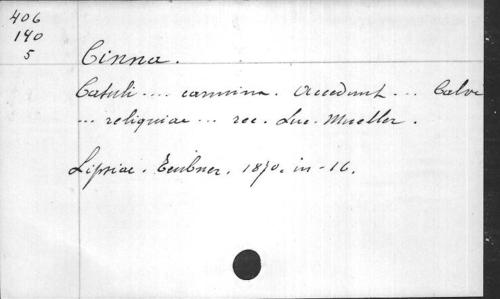 406
140
5
Cinna.
Catuli .... carmina. Accedunt ... Calvi
... reliquiae ... rec. Luc. Mueller.
Lipsiae. Teubner. 1870. in-16.